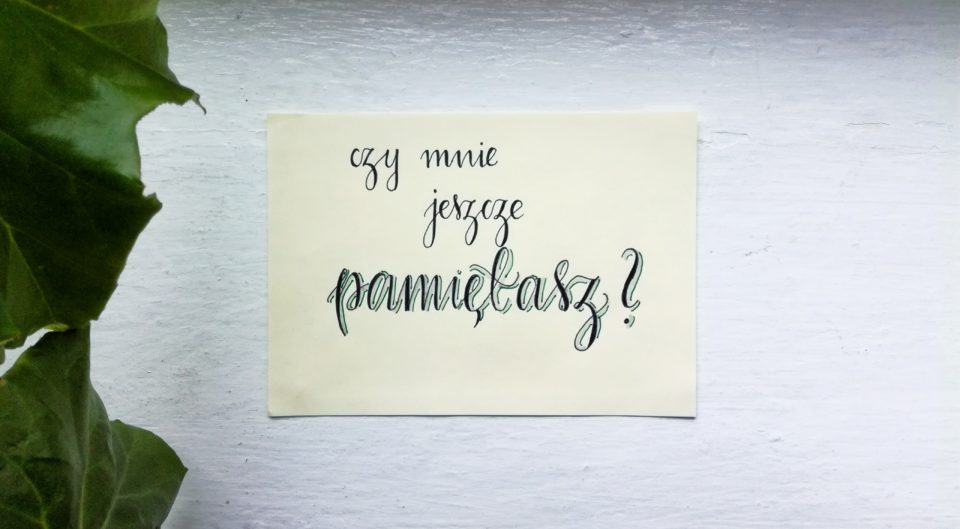 czy mnie
jeszcze
pamiętasz?